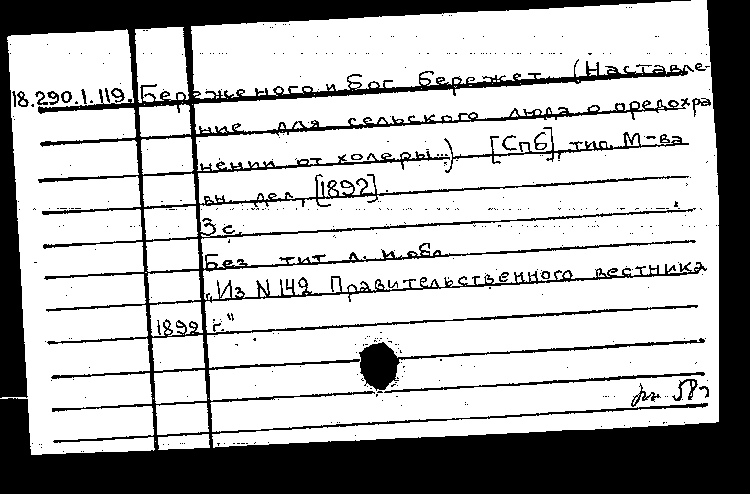 18.290.1.119. Береженого и Бог бережет. (Наставле-
ние для сельского люда о предохра
нении от холеры...). [Спб], тип. М-ва
вн. дел, [1892].
3 с.
Без тит. л. и обл.
„Из N 142 Правительственного вестника
1892 г."
58г